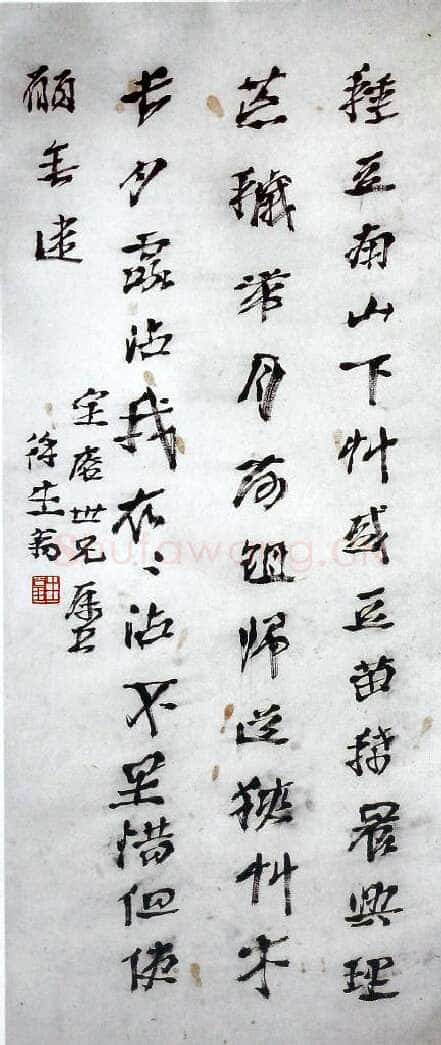 種豆南山下艸盛豆苗稀晨興理
荒穢帶月荷鉏歸道狹艸木
長夕露沾我衣〻沾不足惜但使
願無違
庵世兄屬
徐生翁
Shufawang.cn